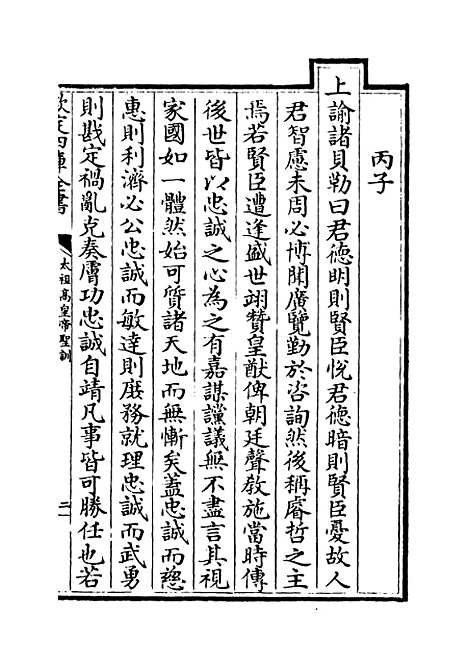 丙子
上諭諸貝勒曰君德明則賢臣悅君德暗則賢臣憂故人
君智慮未周必博聞廣覽勤於咨詢然後稱睿哲之主
焉若賢臣遭逢盛世翊贊皇猷俾朝廷聲教施當時傳
後世皆以忠誠之心為之有嘉謀讜議無不盡言其視
家國如一體然始可質諸天地而無慚矣蓋忠誠而慈
惠則利濟必公忠誠而敏達則庶務就理忠誠而武勇
則戡定禍亂克奏膚功忠誠自靖凡事皆可勝任也若
欽定四庫全書
太祖高皇帝聖訓
二